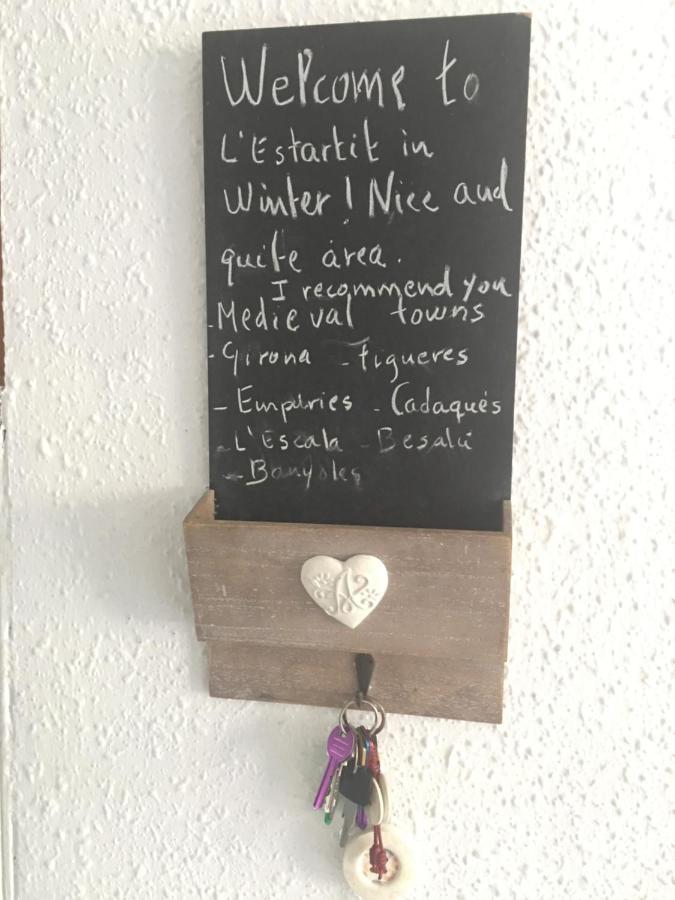 Welcome to
L'Estartit in
Winter! Nice and
quite área.
I recommend you
-Medieval towns
-Girona -Figueres
-Empúries -Cadaqués
-L'Escala -Besalú
-Banyoles